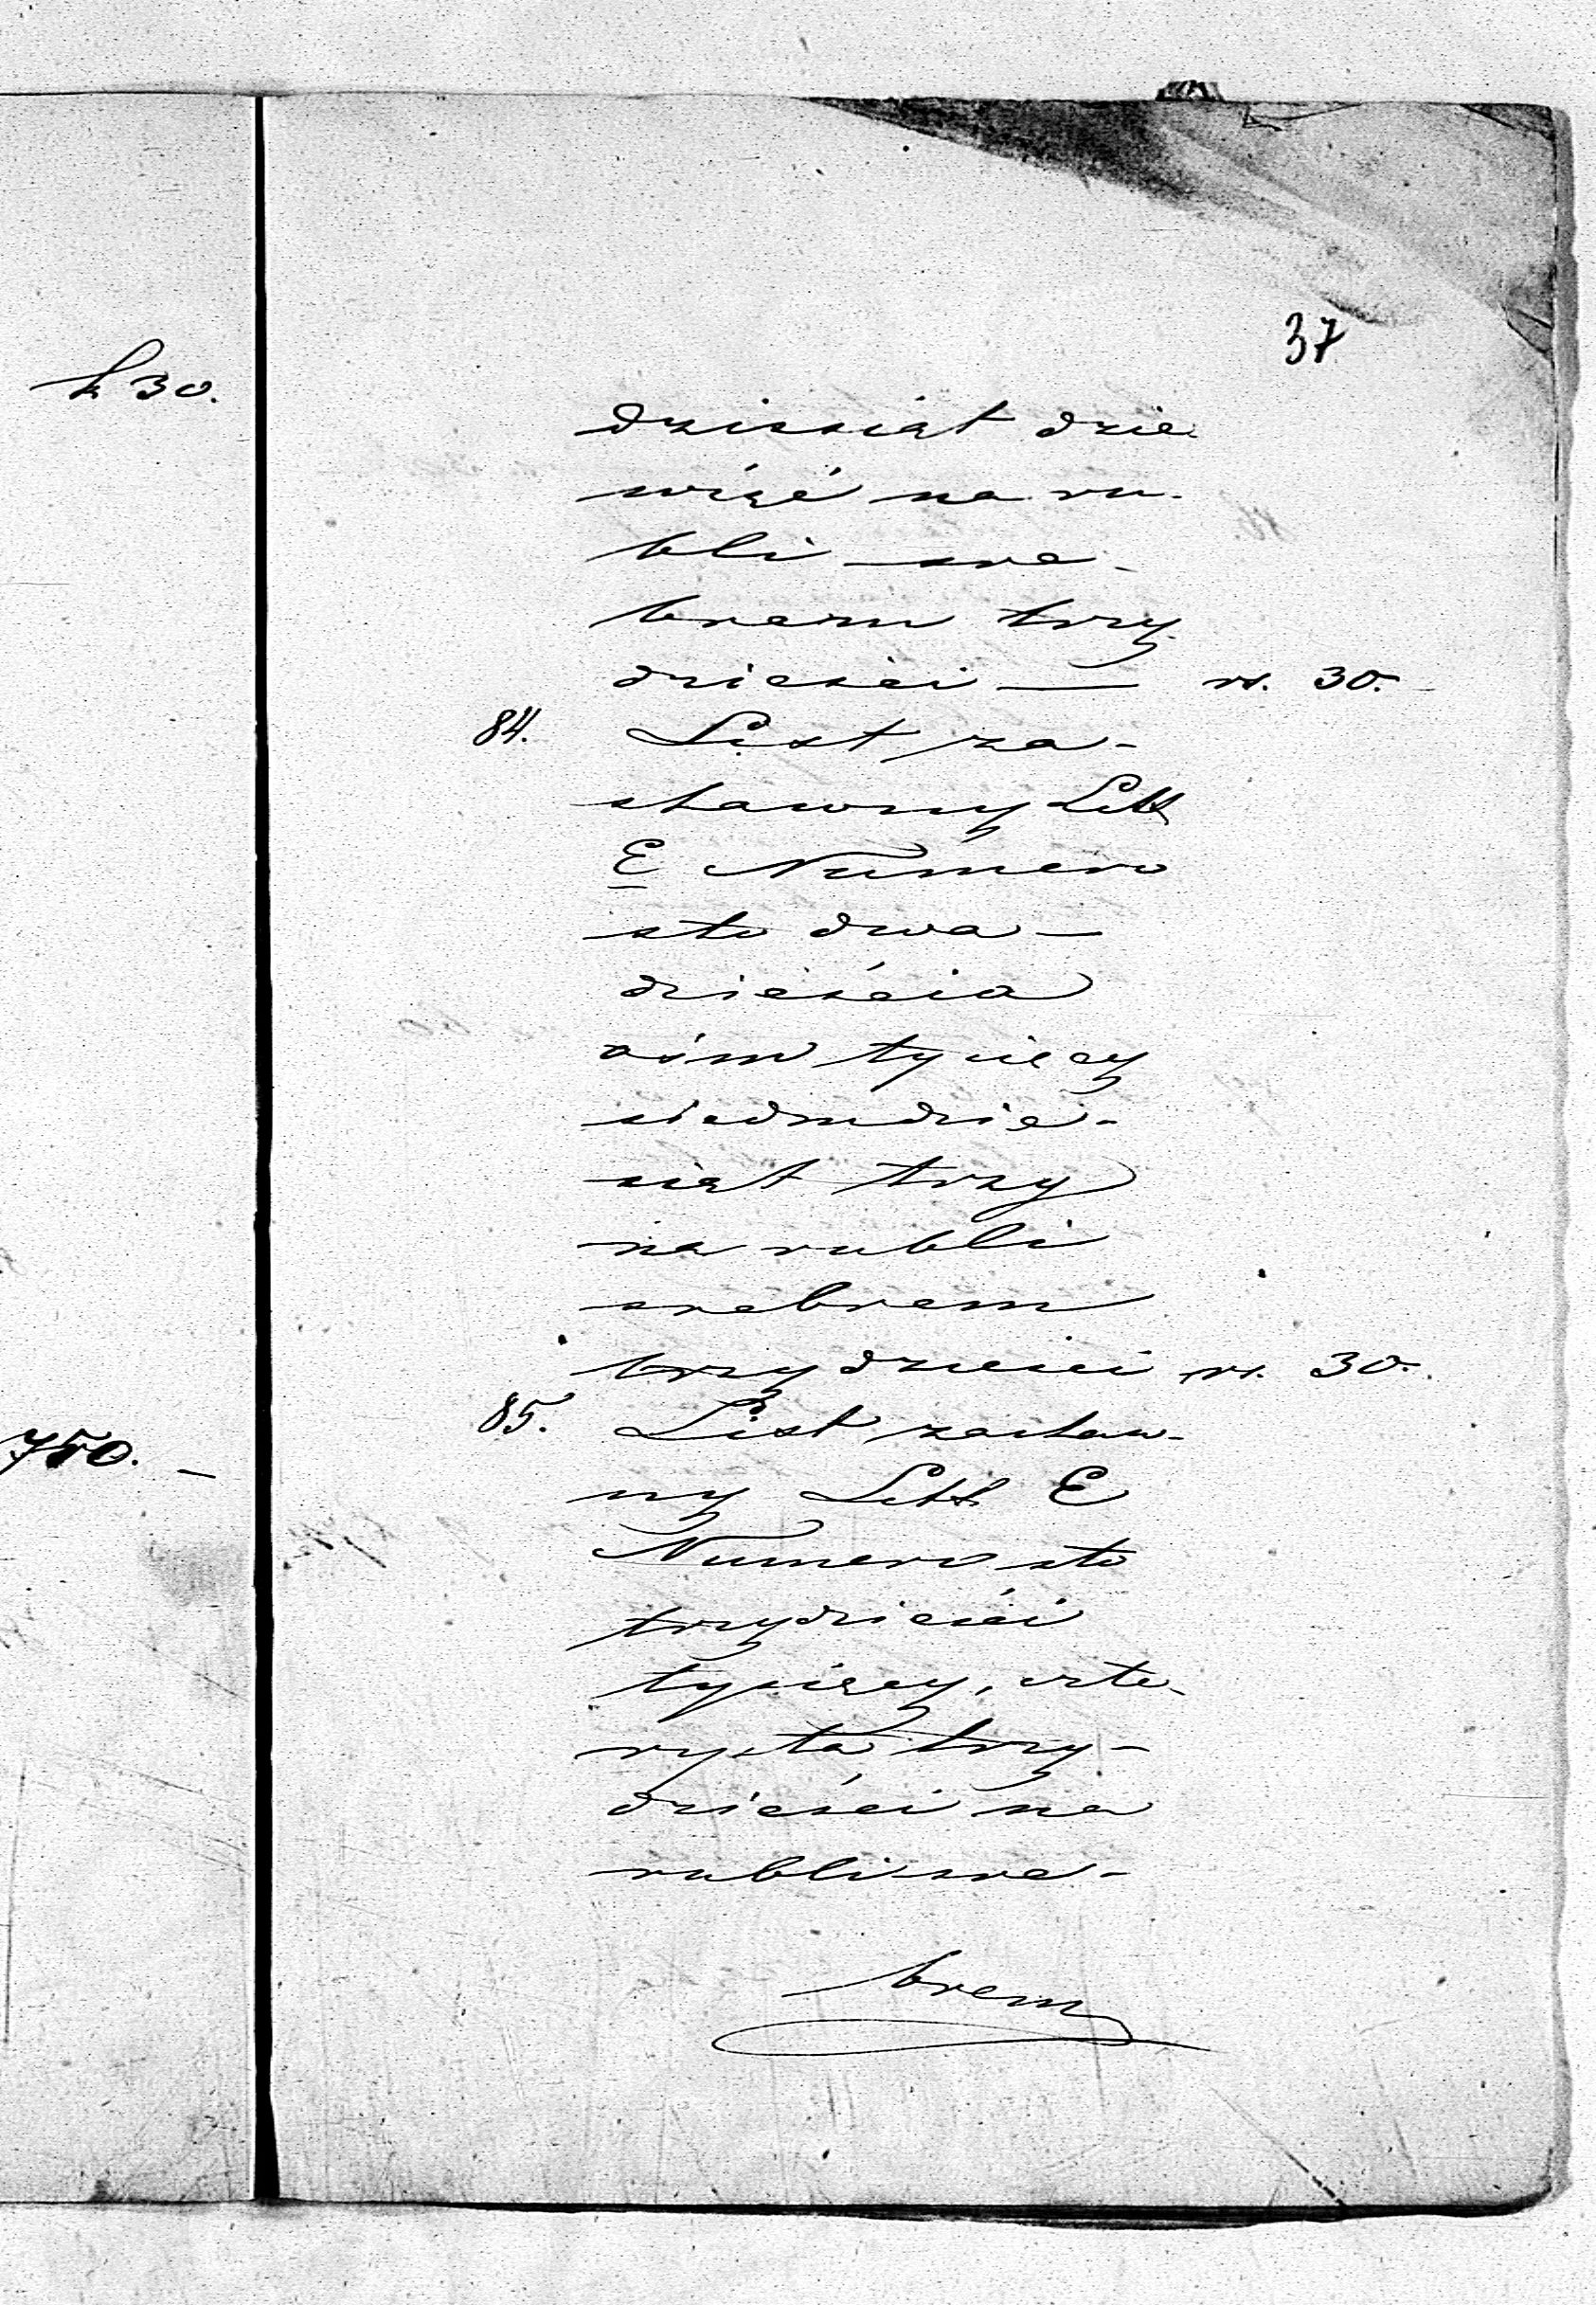 k 30.
750. —
37
dziesiąt dzie-
więć na ru-
bli sre-
brem trzy-
dzieści — rs. 30.
84. List za-
stawny Litt
E Numero
sto dwa-
dzieścia
ośm tysięcy
siedmdzie-
siąt trzy
na rubli
srebrem
trzydzieści rs. 30.
85. List zastaw-
ny Litt E
Numero sto
trzydzieści
tysięcy, czte-
rysta trzy-
dzieści na
rubli sre-
brem